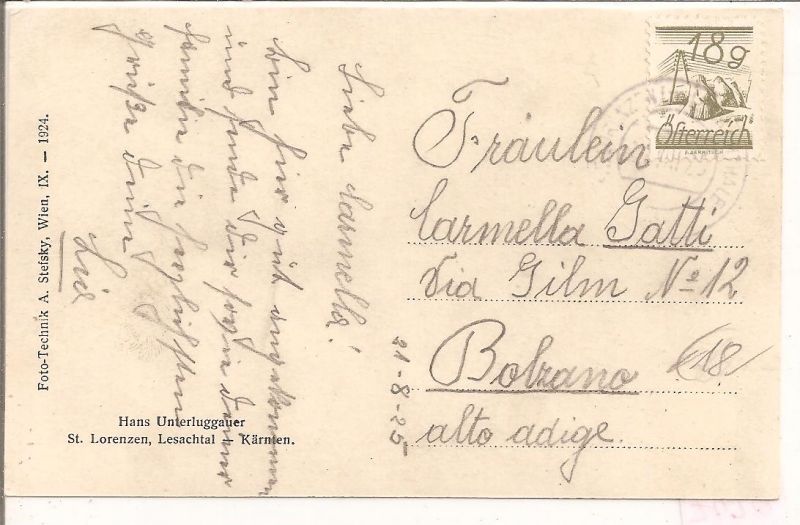 Liebe Carmella!
Bin hier gut angekommen
und sende dir sowie deiner
Familie die herzlichsten
Grüße deine
Lia
Foto-Technik A. Stefsky, Wien, IX. — 1924.
Hans Unterluggauer
St. Lorenzen, Lesachtal + Kärnten.
21-8-25
18g
Österreich
Fräulein
Carmella Gatti
Via Gilm No 12
Bolzano
(18)
alto adige.